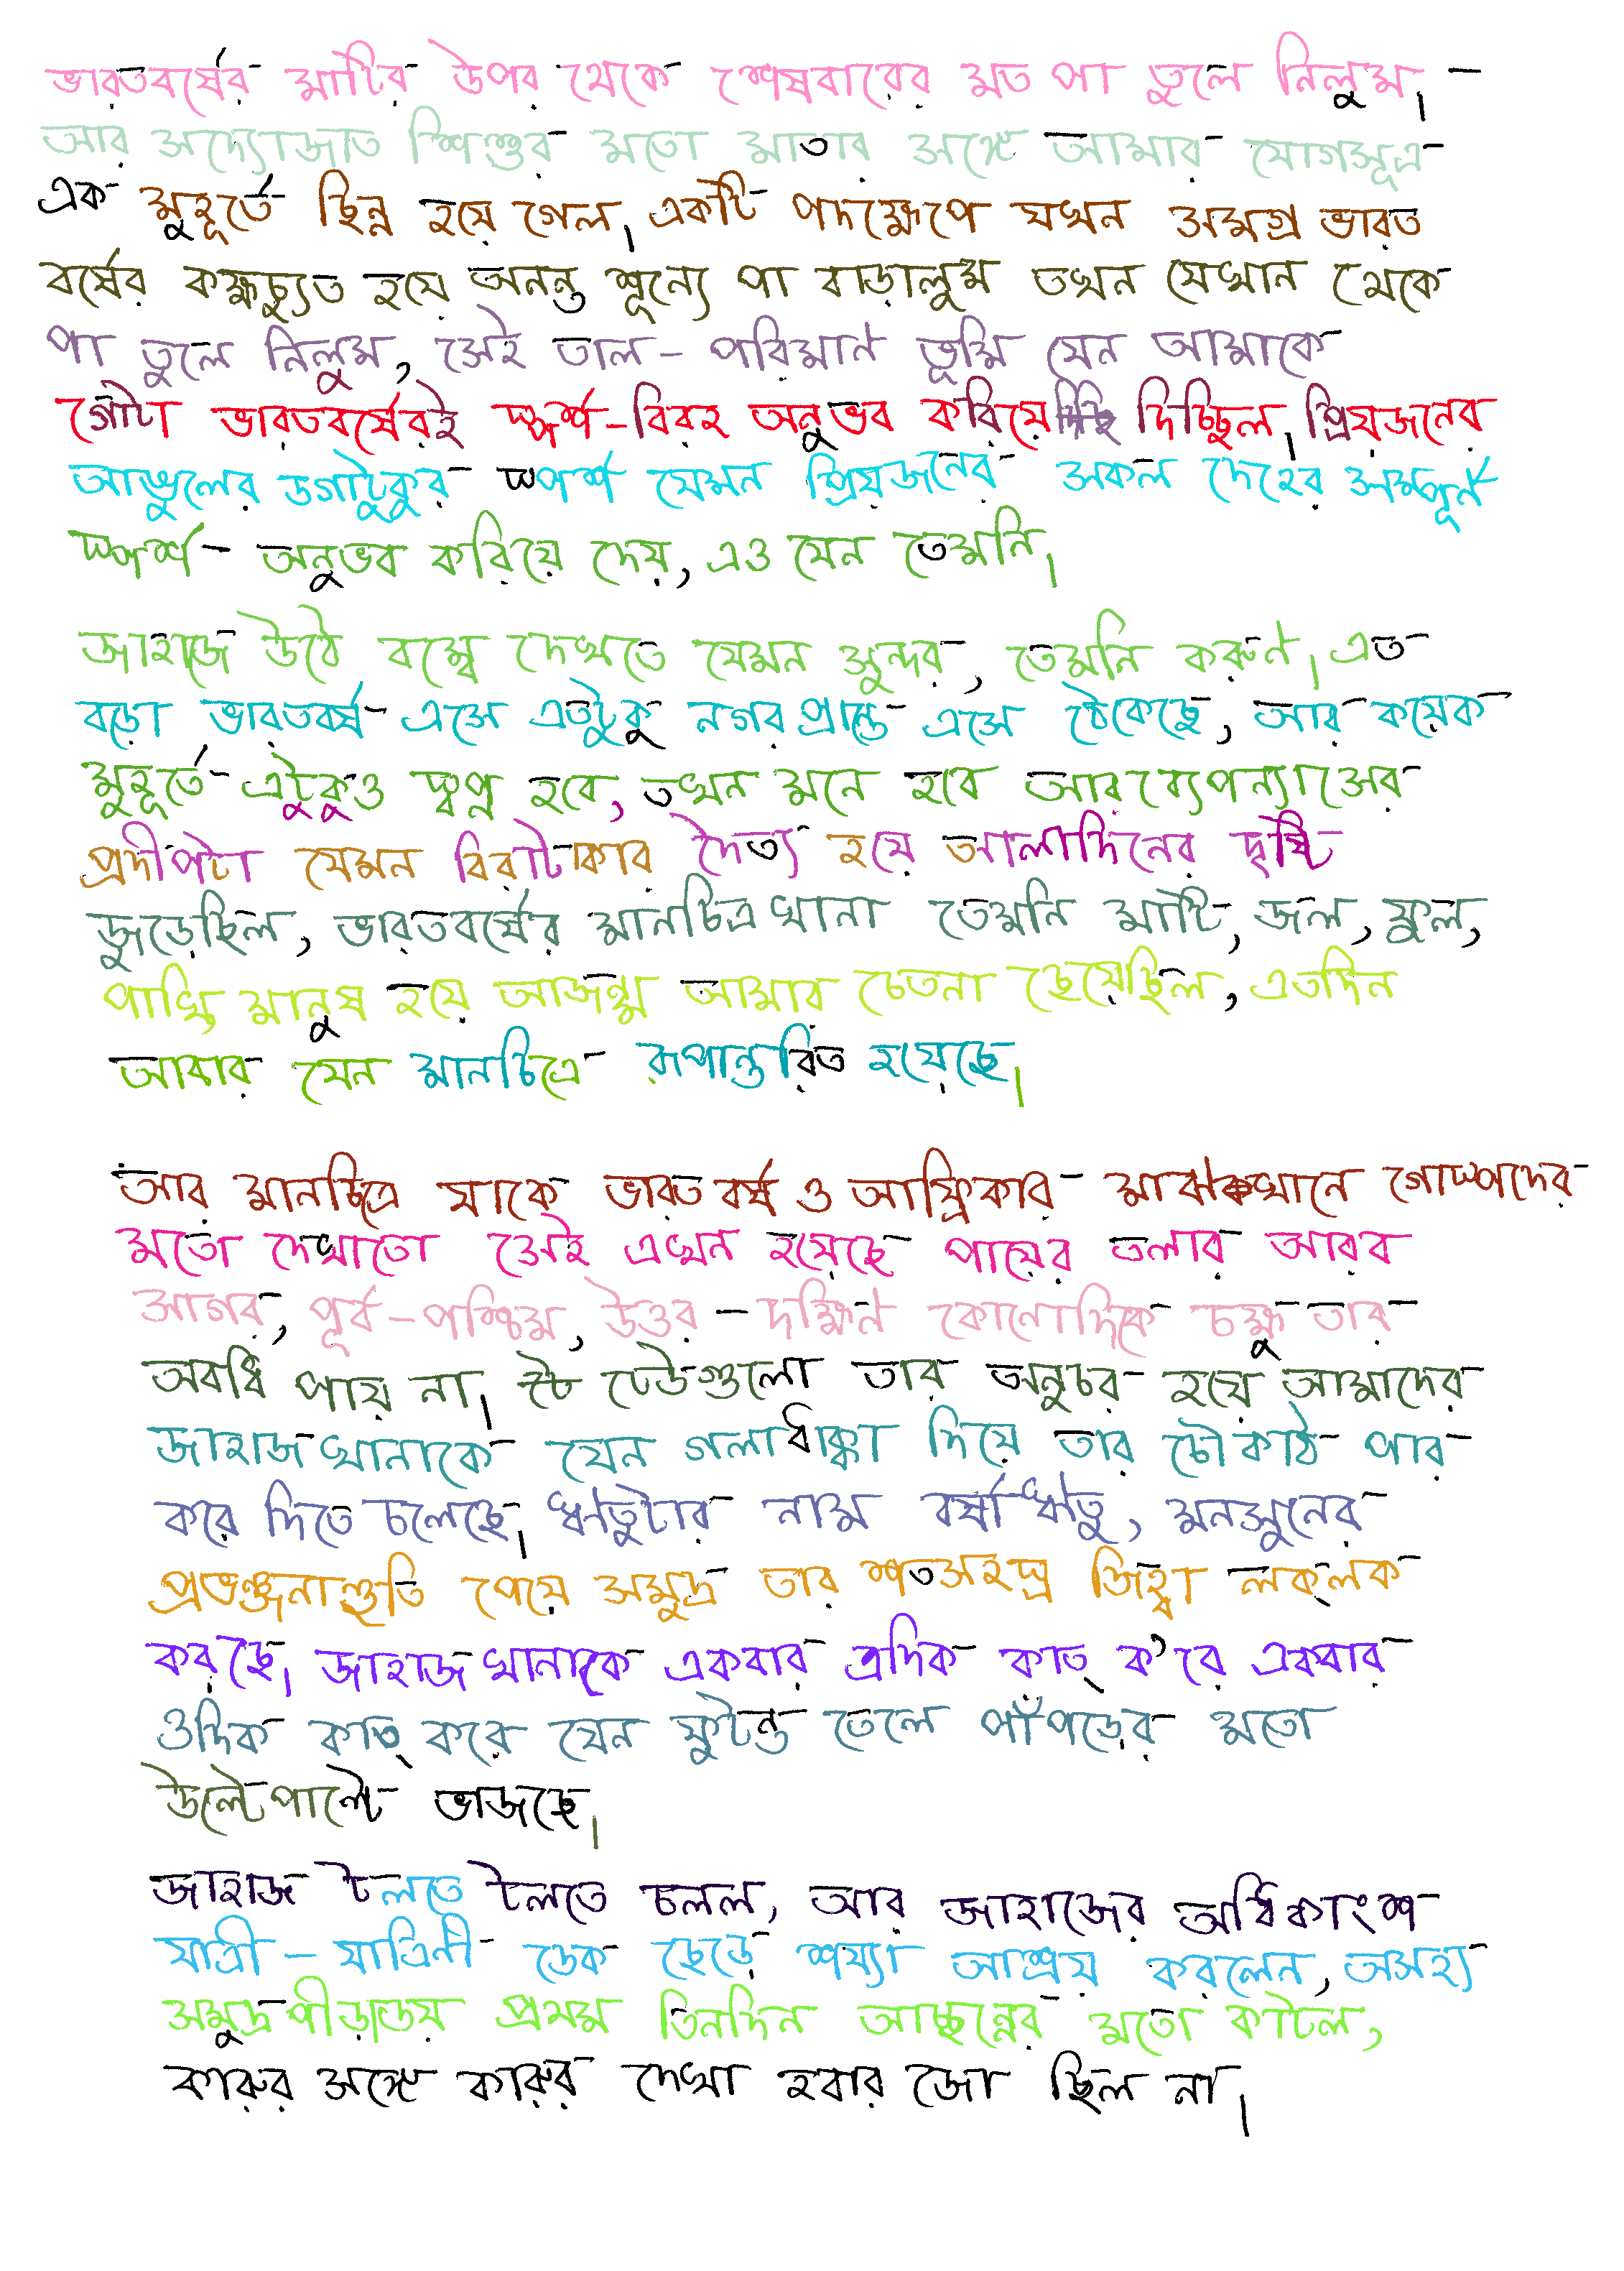 ভারতবর্ষের মাটির উপর থেকে শেষবারের মত পা তুলে নিলুম। -
আর সদ্যোজাত শিশুর মতো মাতার সঙ্গে আমার যোগসূত্র
এক মুহূর্তে ছিন্ন হয়ে গেল। একটি পদক্ষেপে যখন সমগ্র ভারত
বর্ষের কক্ষচ্যুত হয়ে অনন্ত শূন্যে পা বাড়ালুম তখন যেখান থেকে
পা তুলে নিলুম, সেই তাল-পরিমাণ ভূমি যেন আমাকে
গোটা ভারতবর্ষেরই স্পর্শ-বিরহ অনুভব করিয়ে দিচ্ছিল। প্রিয়জনের
আঙুলের ডগাটুকুর স্পর্শ যেমন প্রিয়জনের সকল দেহের সম্পূর্ণ
স্পর্শ- অনুভব করিয়ে দেয়, এও যেন তেমনি।
জাহাজে উঠে বম্বে দেখতে যেমন সুন্দর, তেমনি করুণ। এত
বড়ো ভারতবর্ষ এসে এতটুকু নগরপ্রান্তে এসে ঠেকেছে, আর কয়েক
মুহূর্তে এটুকুও স্বপ্ন হবে, তখন মনে হবে আরব্যোপন্যাসের
প্রদীপটা যেমন বিরাটাকার দৈত্য হয়ে আলাদিনের দৃষ্টি
জুড়েছিল, ভারতবর্ষের মানচিত্রখানা তেমনি মাটি, জল, ফুল,
পাখি মানুষ হয়ে আজন্ম আমার চেতনা ছেয়েছিল, এতদিন
আবার যেন মানচিত্রে রূপান্তরিত হয়েছে।
আর মানচিত্রে যাকে ভারতবর্ষ ও আফ্রিকার মাঝখানে গোস্পদের
মতো দেখাতো সেই এখন হয়েছে পায়ের তলার আরব
সাগর, পূর্ব-পশ্চিম, উত্তর-দক্ষিণ কোনোদিকে চক্ষু তার
অবধি পায় না। ঢেউগুলো তার অনুচর হয়ে আমাদের
জাহাজখানাকে যেন গলাধাক্কা দিয়ে তার চৌকাঠ পার
করে দিতে চলেছে। ঋতুটার নাম বর্ষাঋতু, মনসুনের
প্রভঞ্জনাহুতি পেয়ে সমুদ্র তার শতসহস্র জিহ্বা লক্‌লক
করছে। জাহাজখানাকে একবার এদিক কাত্ ক'রে একবার
ওদিক কাত্ করে যেন ফুটন্ত তেলে পাঁপড়ের মতো
উল্টেপাল্টে ভাজছে।
জাহাজ টলতে টলতে চলল, আর জাহাজের অধিকাংশ
যাত্রী-যাত্রিনী ডেক ছেড়ে শয্যা আশ্রয় করলেন, অসহ্য
সমুদ্রপীড়ায় প্রথম তিনদিন আচ্ছন্নের মতো কাটল,
কারুর সঙ্গে কারুর দেখা হবার জো ছিল না।